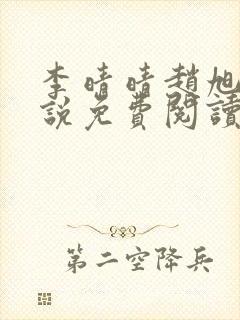 李晴晴趙旭
說免費閱讀
第二空降兵